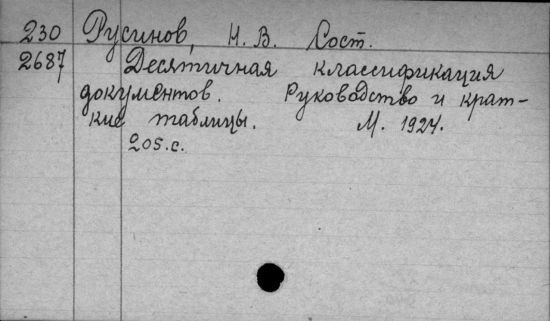 230 Русинов, Н. В. Сост.
2687 Десятичная классификация
документов. Руководство и крат-
кие таблицы. М. 1924.
205.с.